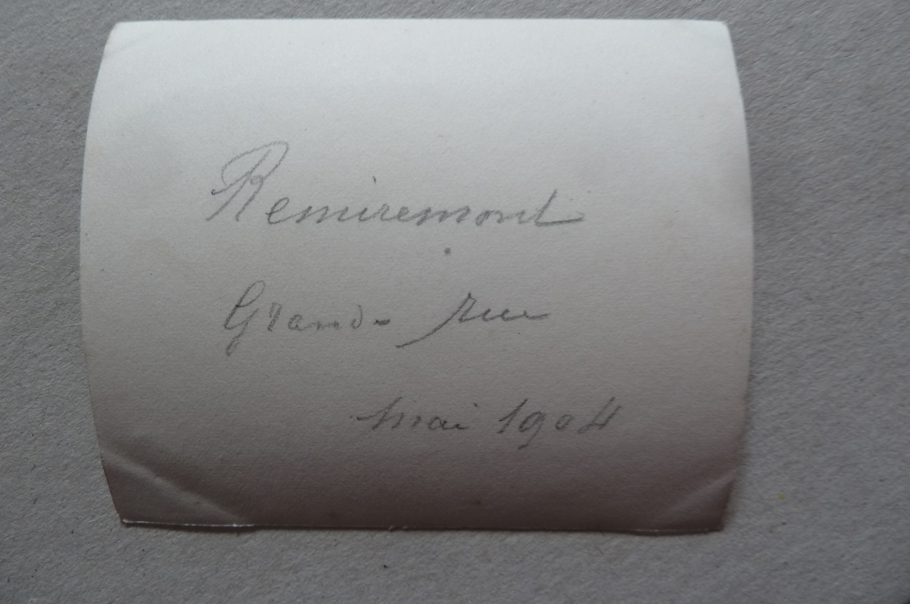 Remiremont
Grand-rue
mai 1904